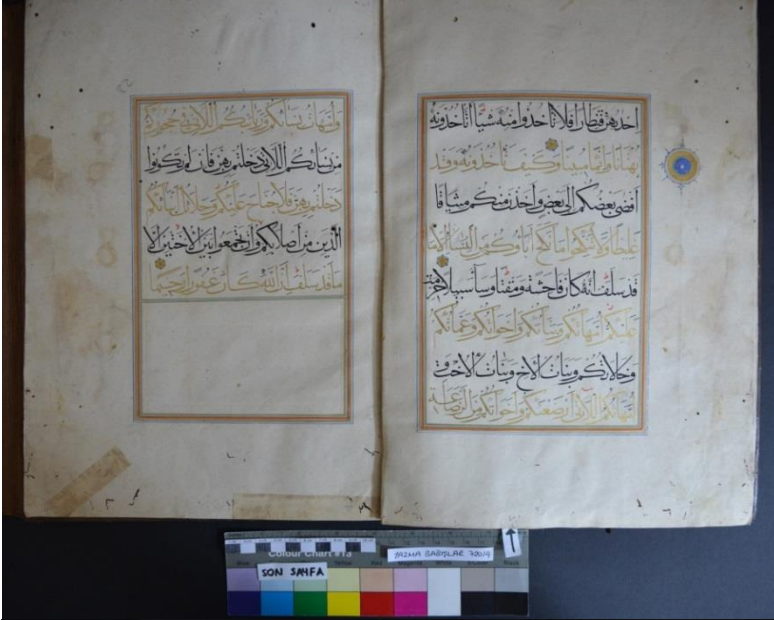 احديهن قنطارا فلا تأخذوا منه شيأ أتأخذونه
بهتانا واثما مبينا وكيف تأخذونه وقد
أفضى بعضكم الى بعض وأخذن منكم ميثاقا
غليظا ولا تنكحوا ما نكح اباؤكم من النساء الا ما
قد سلف انه كان فاحشة ومقتا وساء سبيلا حرمت
عليكم امهاتكم وبناتكم واخواتكم وعماتكم
وخالاتكم وبنات الاخ وبنات الاخت و
امهاتكم اللاتى ارضعنكم واخواتكم من الرضاعة
وامهات نسائكم وربائبكم اللاتى فى حجوركم
من نسائكم اللاتى دخلتم بهن فان لم تكونوا
دخلتم بهن فلا جناح عليكم وحلائل ابنائكم
الذين من اصلابكم وان تجمعوا بين الاختين الا
ما قد سلف ان الله كان غفورا رحيما
Colour Chart #13
YAZMA BAĞIŞLAR 7001/9
SON SAYFA